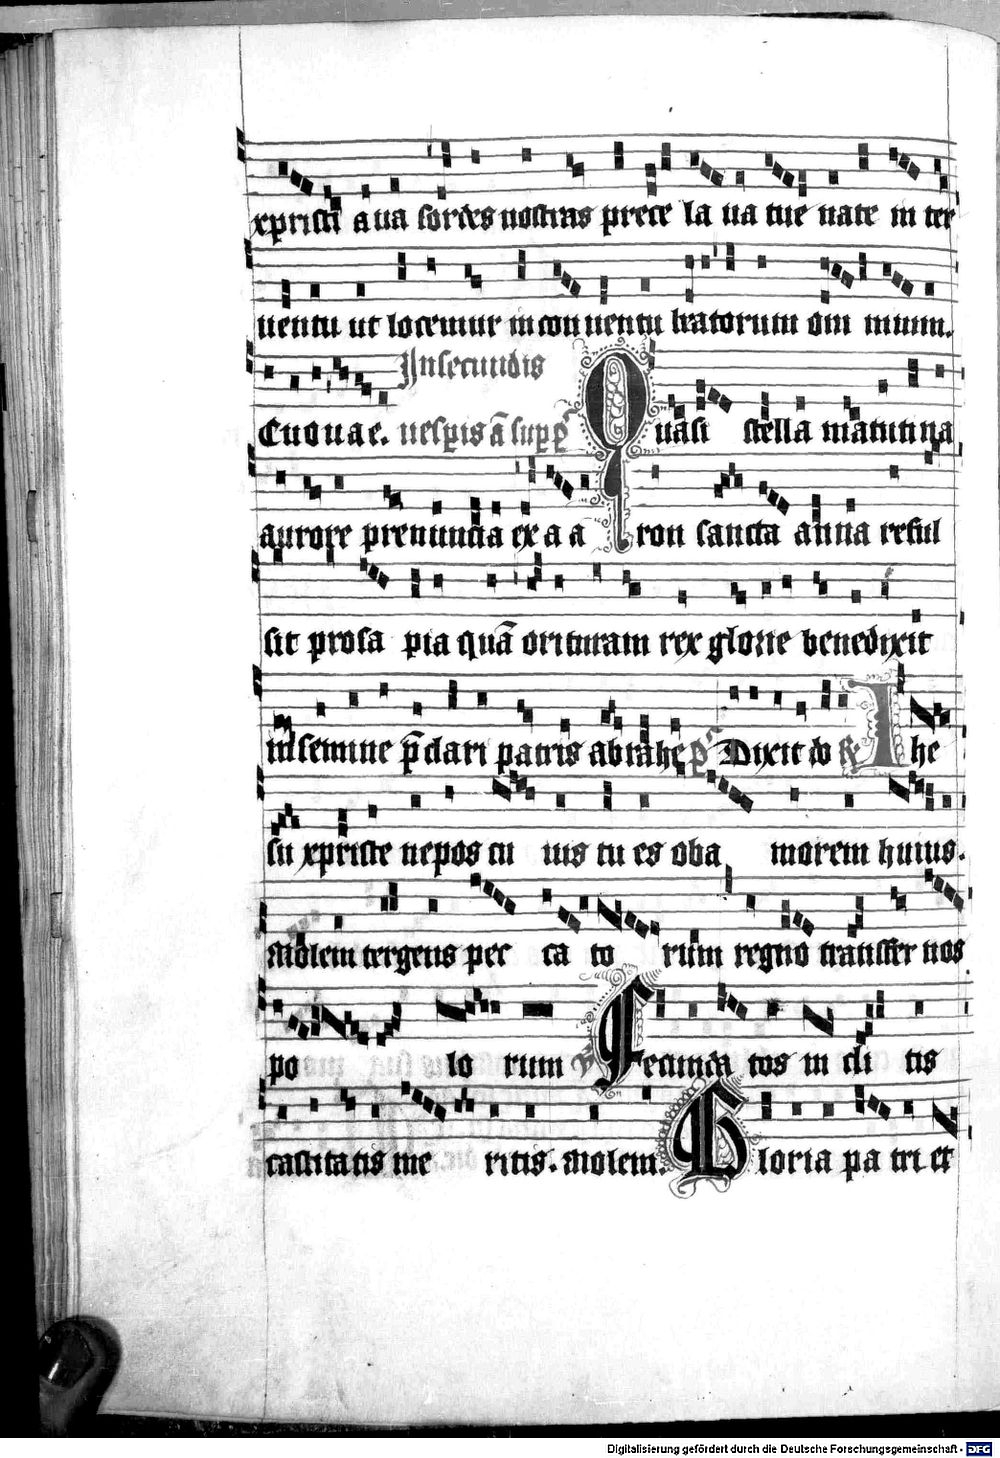 xpristi a ua sordes nostras prece la ua tue nate in ter
uentu ut locemur in con uentu beatorum om nium.
In secundis
Euouae. uesperis ā sup
Quasi stella matutina
aurore prenuncia ex a a ron sancta anna reful
sit prosa pia quā orituram rex glorie benedixit
in semine p̄clari patris abrahe ps Dixit do R Ihe
su xpriste nepos cu ius tu es oba morem huius.
Molem tergens pec ca to rum regno transfer nos
po lo rum V Fecunda tos in cli tis
castitatis me ritis. Molem. Gloria pa tri et
Digitalisierung gefördert durch die Deutsche Forschungsgemeinschaft - DFG